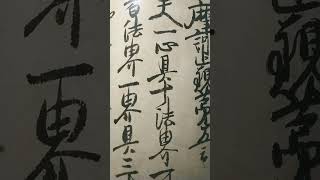 摩訶止觀第五云
夫一心具十法界
百法界一界具三